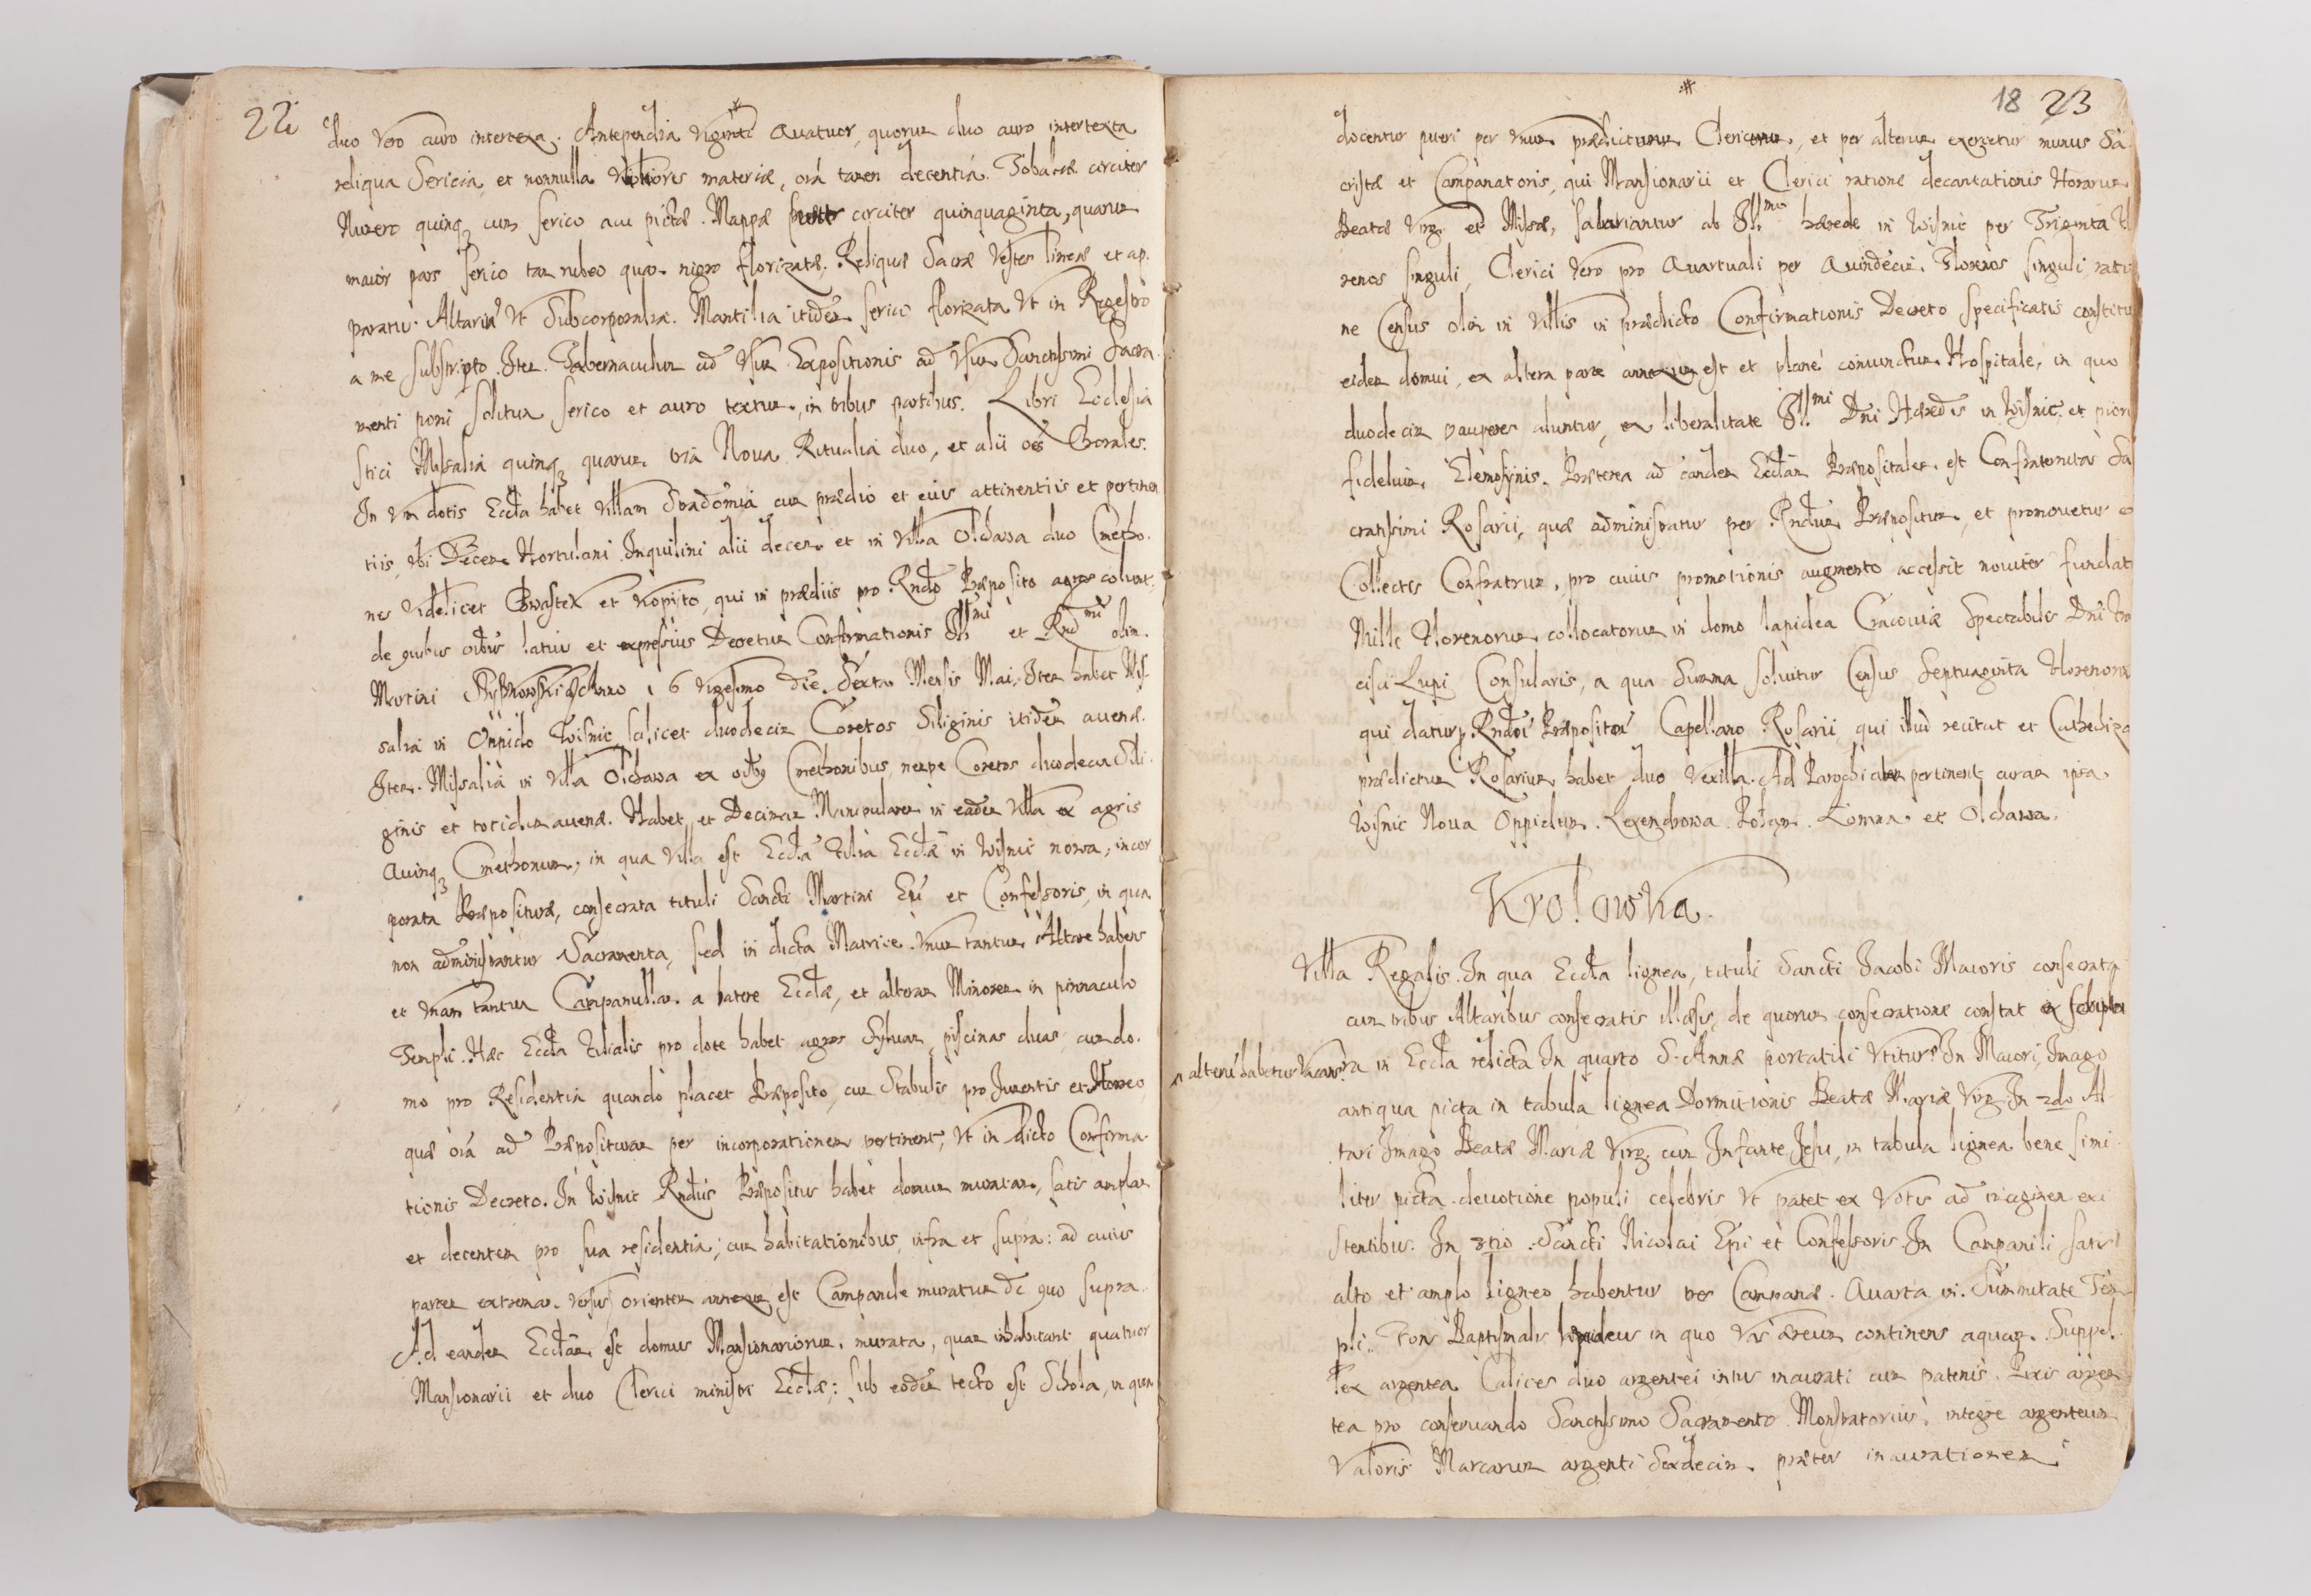 22
duo vero auro intertexa. Antependia viginti Quatuor, quorum duo auro intertexta
reliqua Sericia, et nonnulla vilioris materiæ, oĩa tamen decentia. Tobaleæ circiter
Numero quinq3 cum serico acu pictæ. Mappæ circiter quinquaginta, quarum
maior pars serico tam rubeo quam nigro florizatæ. Reliquæ Sacræ Vestes lineæ et ap-
paratus Altarium Vt Subcorporalia. Mantilia itidem serico florizata Vt in Regestro
a me subscripto. Item Tabernaculum ad Vsum Expositionis ad Vsum Sanctissimi Sacra-
menti poni solitum serico et auro textum, in tribus partibus. Libri Ecclesia
stici Missalia quinq3 quarum tria Noua Ritualia duo, et alii oẽs Chorales.
In Vim dotis Eccl̃a habet Villam Sradomia cum prædio et eius attinentiis et pertinen
tiis, Vbi Decem Hortulani Inquilini alii decem, et in Villa Olchawa duo Cmetho-
nes videlicet Chwastek et Kopyto, qui in prædiis pro Rndo Præposito agros colunt,
de quibus oĩbus latius et expressius Decretum Confirmationis Ill:mi et Rnd:mi olim
Martini Szyszkowski Anno 16 vigesimo die Sexta Mensis Mai. Item habet Mis-
salia in Oppido Wisnic scilicet duodecim Coretos Siliginis itidem auenæ.
Item Missalia in Villa Olchawa ex oĩbus Cmethonibus, nempe Coretos duodecim Sili-
ginis et totidem auenæ. Habet, et Decimam Manipularem in eadem Villa ex agris
Quinq3 Cmethonum, in qua Villa est Eccl̃a Filia Eccl̃æ in Wisnic nowa, incor
porata Præposituræ, consecrata tituli Sancti Martini Epĩ et Confessoris, in qua
non administrantur Sacramenta, sed in dicta Matrice. Vnum tantum Altare habens
et Vnam tantum Campanullam a latere Eccl̃æ, et alteram Minorem in pinnaculo
Templi. Hæc Eccl̃a Filialis pro dote habet agros Syluam, piscinas duas, cum do-
mo pro Residentia quando placet Præposito, cum Stabulis pro Iumentis et Horreo,
quæ oĩa ad Præposituram per incorporationem pertinent, Vt in dicto Confirma-
tionis Decreto. In Wisnic Rndus Præpositus habet domum muratam, satis amplam
et decentem pro sua residentia, cum habitationibus, infra et supra: ad cuius
partem extremam versus orientem annexum est Campanile muratum de quo supra.
Ad eandem Eccl̃am est domus Mansionariorum, murata, quam inhabitant quatuor
Mansionarii et duo Clerici ministri Eccl̃æ; sub eodem tecto est Schola, in qua
18 23
docentur pueri per Vnum prædictorum Clericorum, et per alterum exercetur munus Sa-
cristæ et Campanatoris, qui Mansionarii et Clerici ratione decantationis Horarum
Beatæ Virg. et Missæ, salariantur ab Ill:mo hærede in Wisnic per Triginta Fl
renos singuli, Clerici Vero pro Quartuali per Quindecim Florenos singuli, ratio
ne Census olim in Villis in prædicto Confirmationis Decreto specificatis constitu
eidem domui, ex altera parte annexum est et plane coniunctum Hospitale, in quo
duodecim pauperes aluntur, ex liberalitate Ill:mi Dni Hæredis in Wisnic et pior
fidelium Elemosynis. Præterea ad eandem Eccl̃am Præpositalem est Confraternitas Sa
cratissimi Rosarii, quæ administratur per Rndum Præpositum, et promouetur e
Collectis Confratrum, pro cuius promotionis augmento accessit nouiter fundat
Mille Florenorum collocatorum in domo lapidea Cracouiæ Spectabilis Dni Fran
cisci Lupi Consularis, a qua Summa soluitur Census Septuaginta Florenoru
qui datur Rndi Præpositi Capellano Rosarii qui illud recitat et Cathechiza
prædictum Rosarium habet duo vexilla. Ad Parochialem pertinent curam ipsa
Wisnic Noua Oppidum. Lexandrowa. Połom. Łomna et Olchawa.
Krolowka.
Villa Regalis. In qua Eccl̃a lignea, tituli Sancti Iacobi Maioris consecrata
cum tribus Altaribus consecratis illæsis, de quorum consecratione constat ex scriptu
alterũ habetur Vacans ra in Eccl̃a relicta In quarto S. Annæ portatili Vtitur. In Maiori, Imago
antiqua picta in tabula lignea Dormitionis Beatæ Mariæ Virg. In 2do Al-
tari Imago Beatæ Mariæ Virg. cum Infante Iesu, in tabula lignea bene simi-
liter picta deuotione populi celebris Vt patet ex Votis ad imaginem exi
stentibus. In 3tio Sancti Nicolai Epi et Confessoris. In Campanili satis
alto et amplo ligneo habentur tres Campanæ. Quarta in Summitate Tem-
pli. Fons Baptismalis lapideus in quo Vas æreum continens aquam. Suppel-
lex argentea Calices duo argentei intus inaurati cum patenis. Pixis argen
tea pro conseruando Sanctissimo Sacramento. Monstratorium integre argenteum
Valoris Marcarum argenti Sexdecim præter inaurationem